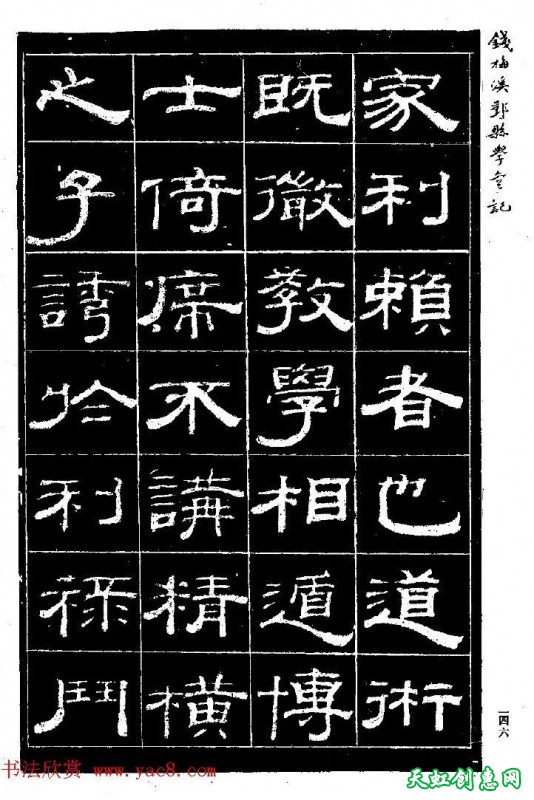 錢梅溪縣學宮記
家利賴者也道術
既微教學相遁博
士倚席不講精橫
之子誘於利祿鬥
一四六
书法欣赏 www.yac8.com
天虹创意网